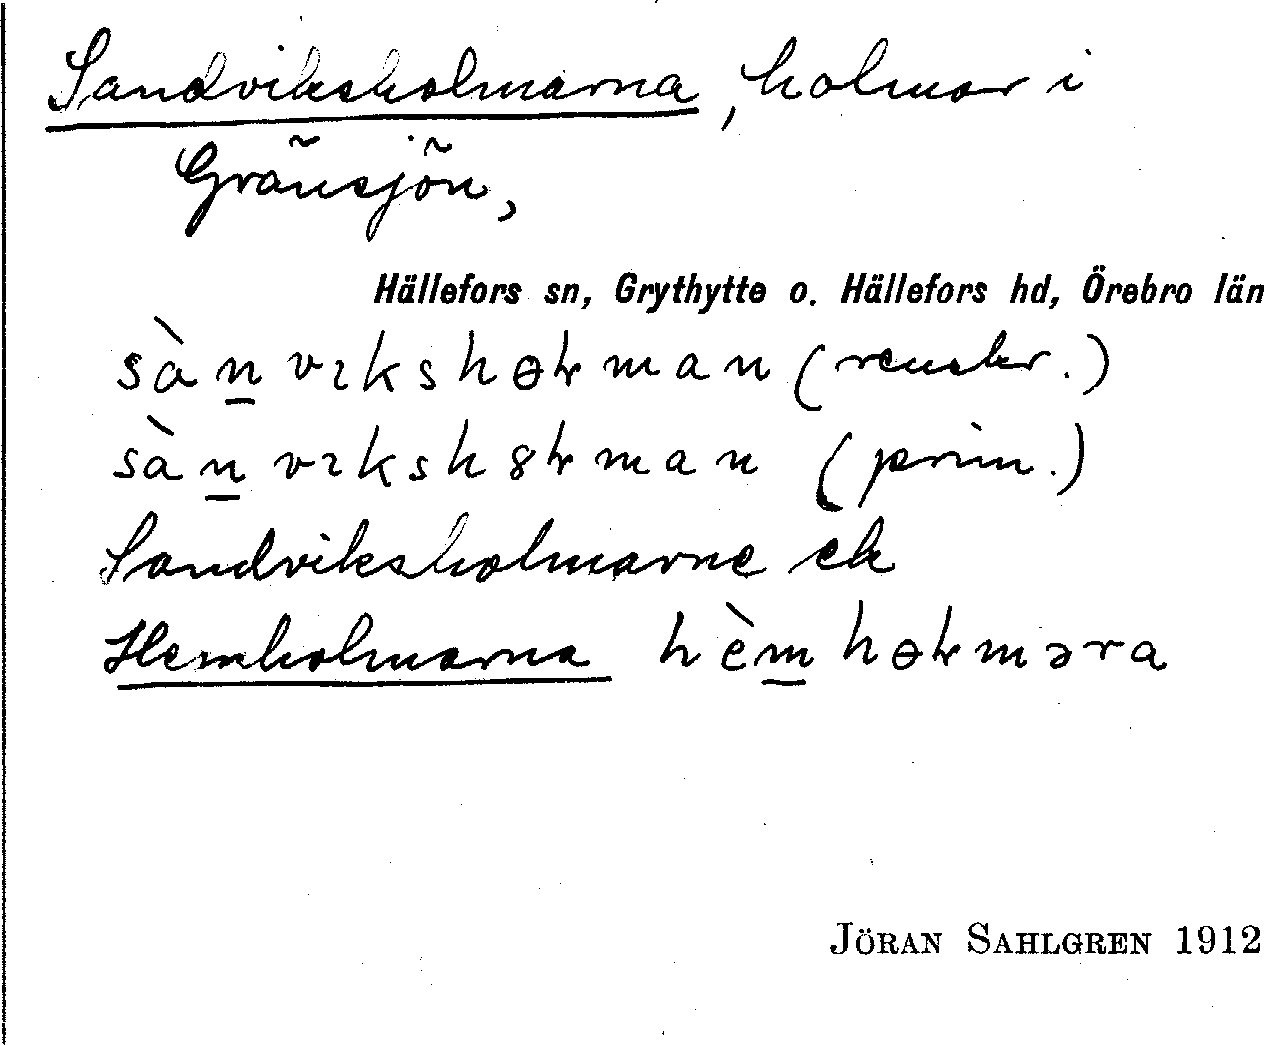 Sandviksholmarna, holmar i
Gränsjön,
Hällefors sn, Grythytte o. Hällefors hd, Örebro län
sàn̲vɪkshɵłman (renskr.)
sàn̲vɪksh8łman (prim.)
Sandviksholmarne ek
Hemholmarna hèm̲hɵłməra
JÖRAN SAHLGREN 1912